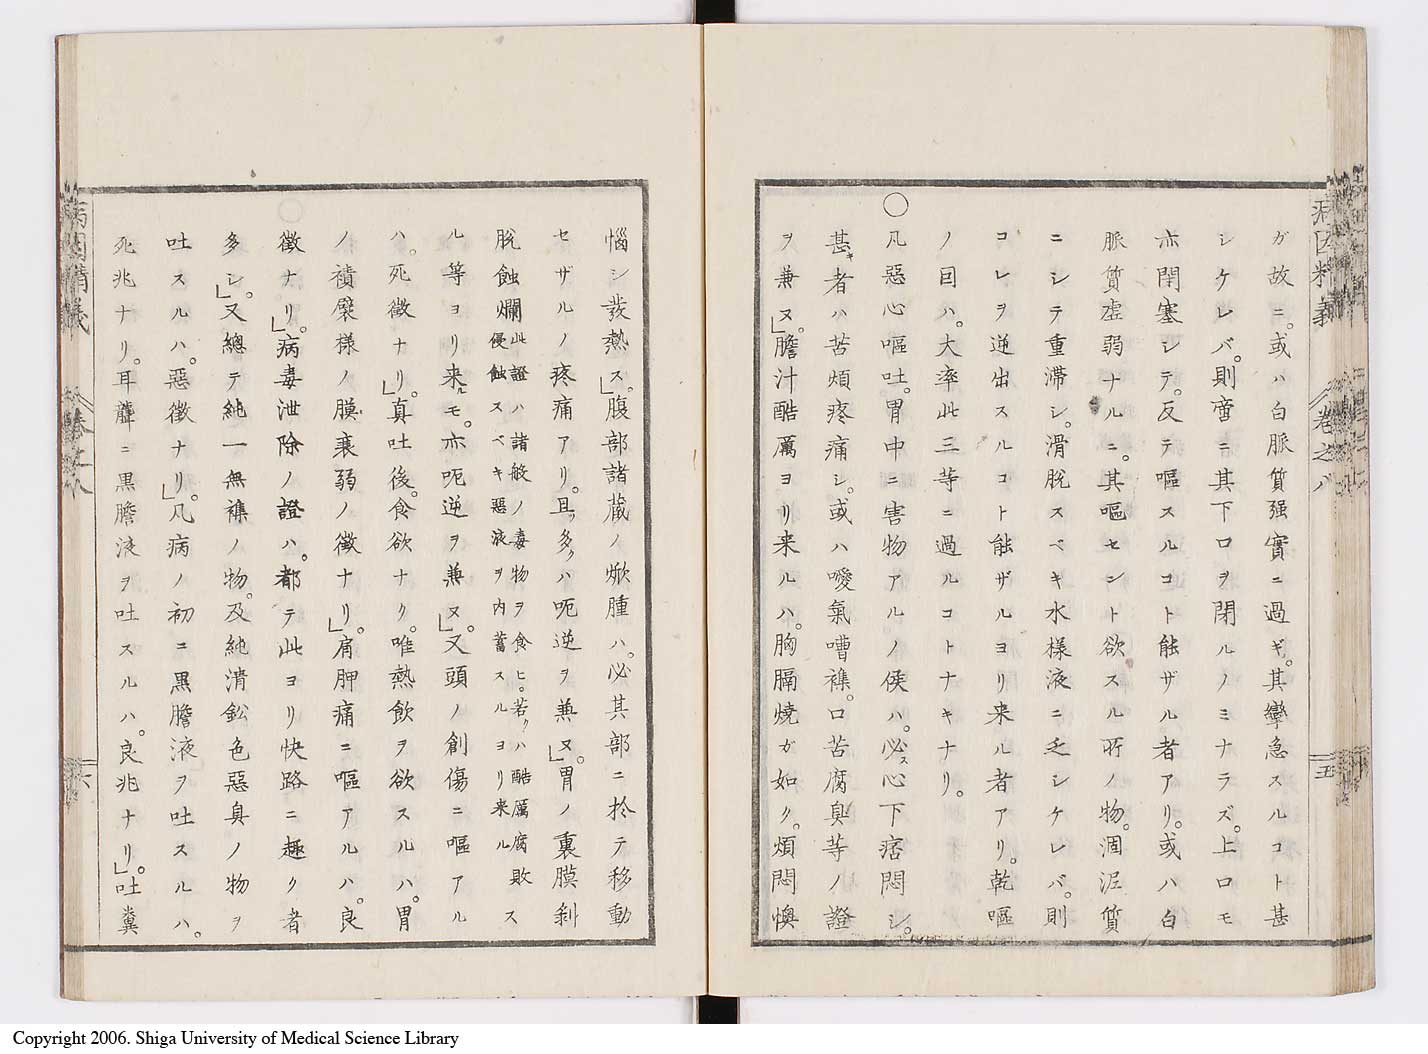 ガ故ニ。或ハ白脈質强實ニ過ギ。其攣急スルコト甚
シケレバ。則啻ニ其下口ヲ閉ルノミナラズ。上口モ
亦閉塞シテ。反テ嘔スルコト能ザル者アリ。或ハ白
脈質虚弱ナルニ。其嘔セント欲スル所ノ物。涸泥質
ニシテ重滞シ。滑脫スベキ水様液ニ乏シケレバ。則
コレヲ逆出スルコト能ザルヨリ来ル者アリ。乾嘔
ノ因ハ。大率此三等ニ過ルコトナキナリ。
〇凡惡心嘔吐。胃中ニ害物アルノ候ハ。必ス心下痞悶シ。
甚キ者ハ苦煩疼痛シ。或ハ噯氣嘈襍。口苦腐臭等ノ證
ヲ兼ヌ」。膽汁酷厲ヨリ来ルハ。胸膈燒ガ如ク。煩悶懊
五
惱シ發熱ス」。腹部諸蔵ノ焮腫ハ。必其部ニ於テ移動
セザルノ疼痛アリ。且ツ多クハ呃逆ヲ兼ヌ」。胃ノ裏膜剝
脫蝕爛此證ハ諸般ノ毒物ヲ食ヒ。若クハ酷厲腐敗
侵蝕スベキ惡液ヲ内蓄スルヨリ来ルス
ル等ヨリ来ルモ。亦呃逆ヲ兼ヌ」。又頭ノ創傷ニ嘔アル
ハ。死徴ナリ」。真吐後。食欲ナク。唯熱飲ヲ欲スルハ。胃
ノ襀襞様ノ膜衰弱ノ徴ナリ」。肩胛痛ニ嘔アルハ。良
徴ナリ」。病毒泄除ノ證ハ。都テ此ヨリ快路ニ趣ク者
多シ」。又總テ純一無襍ノ物。及純清鈆色惡臭ノ物ヲ
吐スルハ。惡徴ナリ」。凡病ノ初ニ黒膽液ヲ吐スルハ。
死兆ナリ。耳聾ニ黒膽液ヲ吐スルハ。良兆ナリ」。吐糞
卷之八
六
Copyright 2006. Shiga University of Medical Science Library